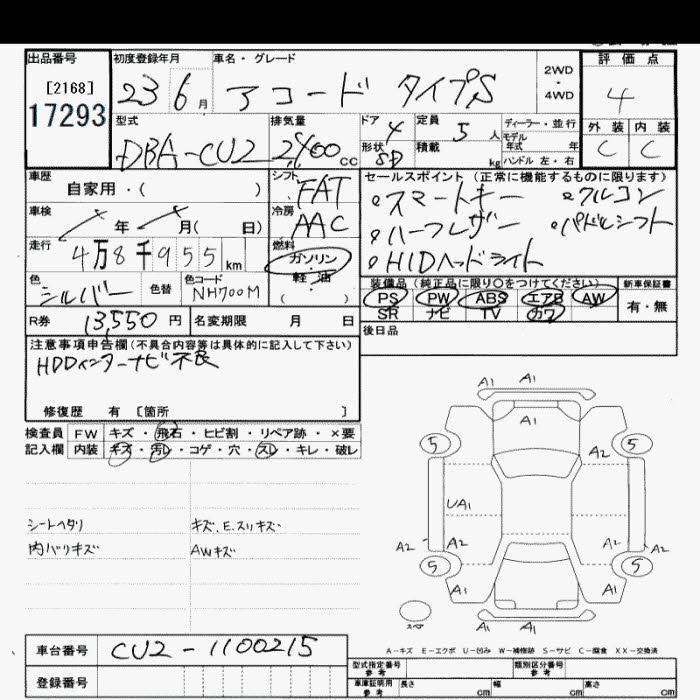 出品番号 初度登録年月 車名・グレード 2WD・4WD 評価点
[2168] 17293 23 6月 アコード タイプS 4
外装 内装
C C
型式 排気量 ドア 定員 ディーラー・並行
DBA-CU2 2,400cc 4 5人 モデル年式 年
形状 積載 kg ハンドル 左・右
SD
車歴 シフト セールスポイント(正常に機能するものに限ります)
自家用・( ) FAT ・スマートキー ・クルコン
車検 冷房 ・ハーフレザー ・パドルシフト
年 月( 日) AAC ・HIDヘッドライト
走行 燃料
4万8千955km ガソリン・軽油
( )
色 色替 色コード 装備品(純正品に限り○をつけてください) 新車保証書
シルバー NH700M PS PW ABS エアB AW 有・無
SR ナビ TV カワ
R券 13,550円 名変期限 月 日 後日品
注意事項申告欄(不具合内容等は具体的に記入して下さい)
HDDインターナビ不良
修復歴 有 [箇所 ]
検査員 FW キズ・飛石・ヒビ割・リペア跡・×要
記入欄 内装 キズ・汚レ・コゲ・穴・スレ・キレ・破レ
シートヘタリ キズ、E.スリキズ
内バリキズ AWキズ
A1 A1
A1
5 5
A2
UA1
A2 A2 A2 A2
5 5
A1 A1
A1 A1
スペア
A-キズ E-エクボ U-凹み W-補修跡 S-サビ C-腐食 XX-交換済
車台番号 CU2-1100215
登録番号
型式指定番号 参考 類別区分番号 参考
車庫証明用 参考 長さ cm 幅 cm 高さ cm